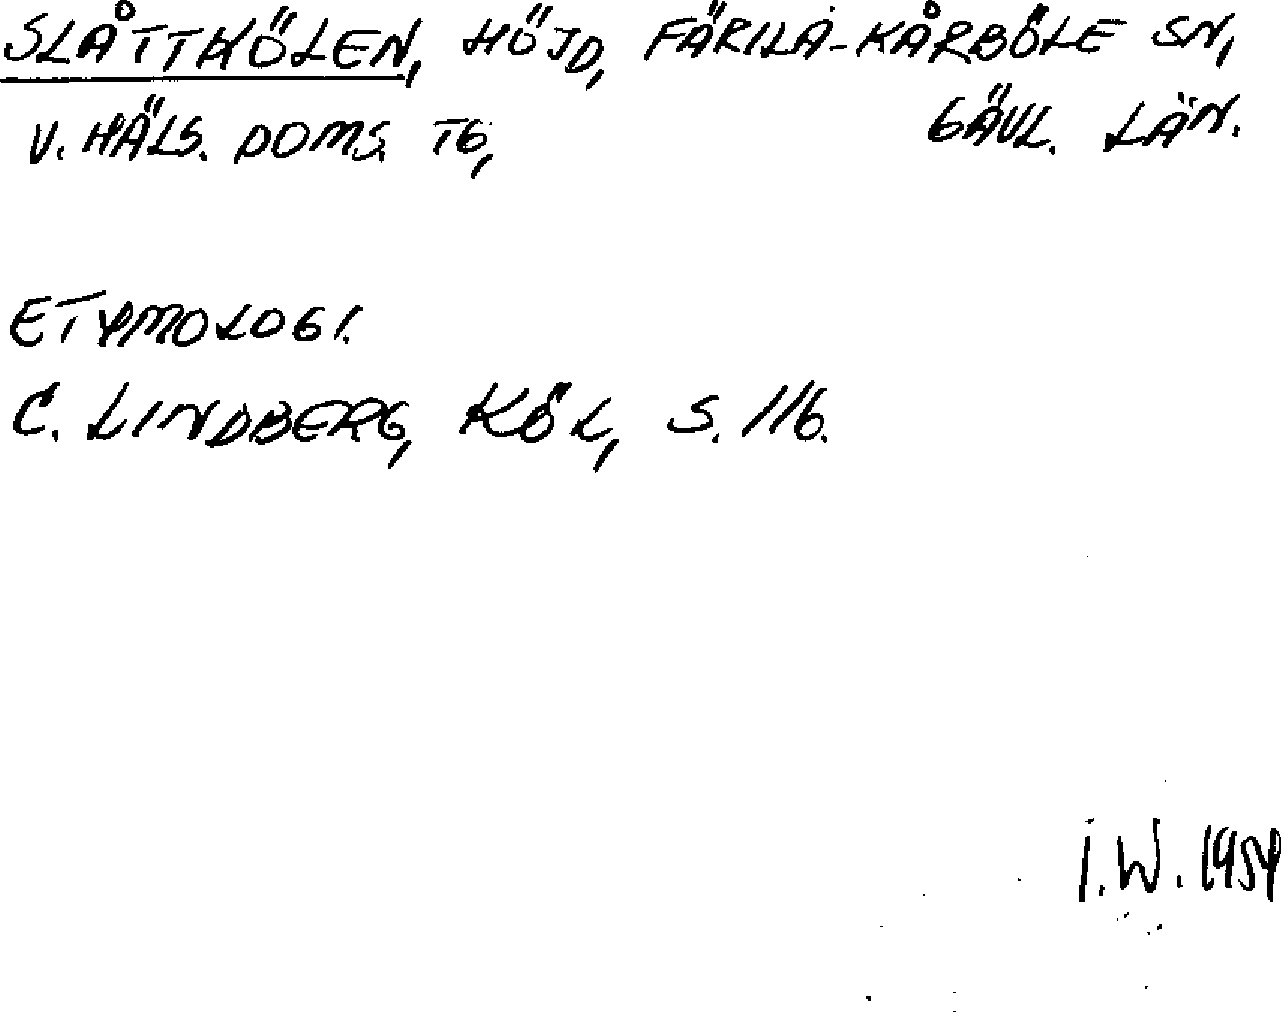 SLÅTTKÖLEN, HÖJD, FÄRILA-KÅRBÖLE SN,
V. HÄLS. DOMS. TG, GÄVL. LÄN.
ETYMOLOGI.
C. LINDBERG, KÖL, S. 116.
I.W. 1954